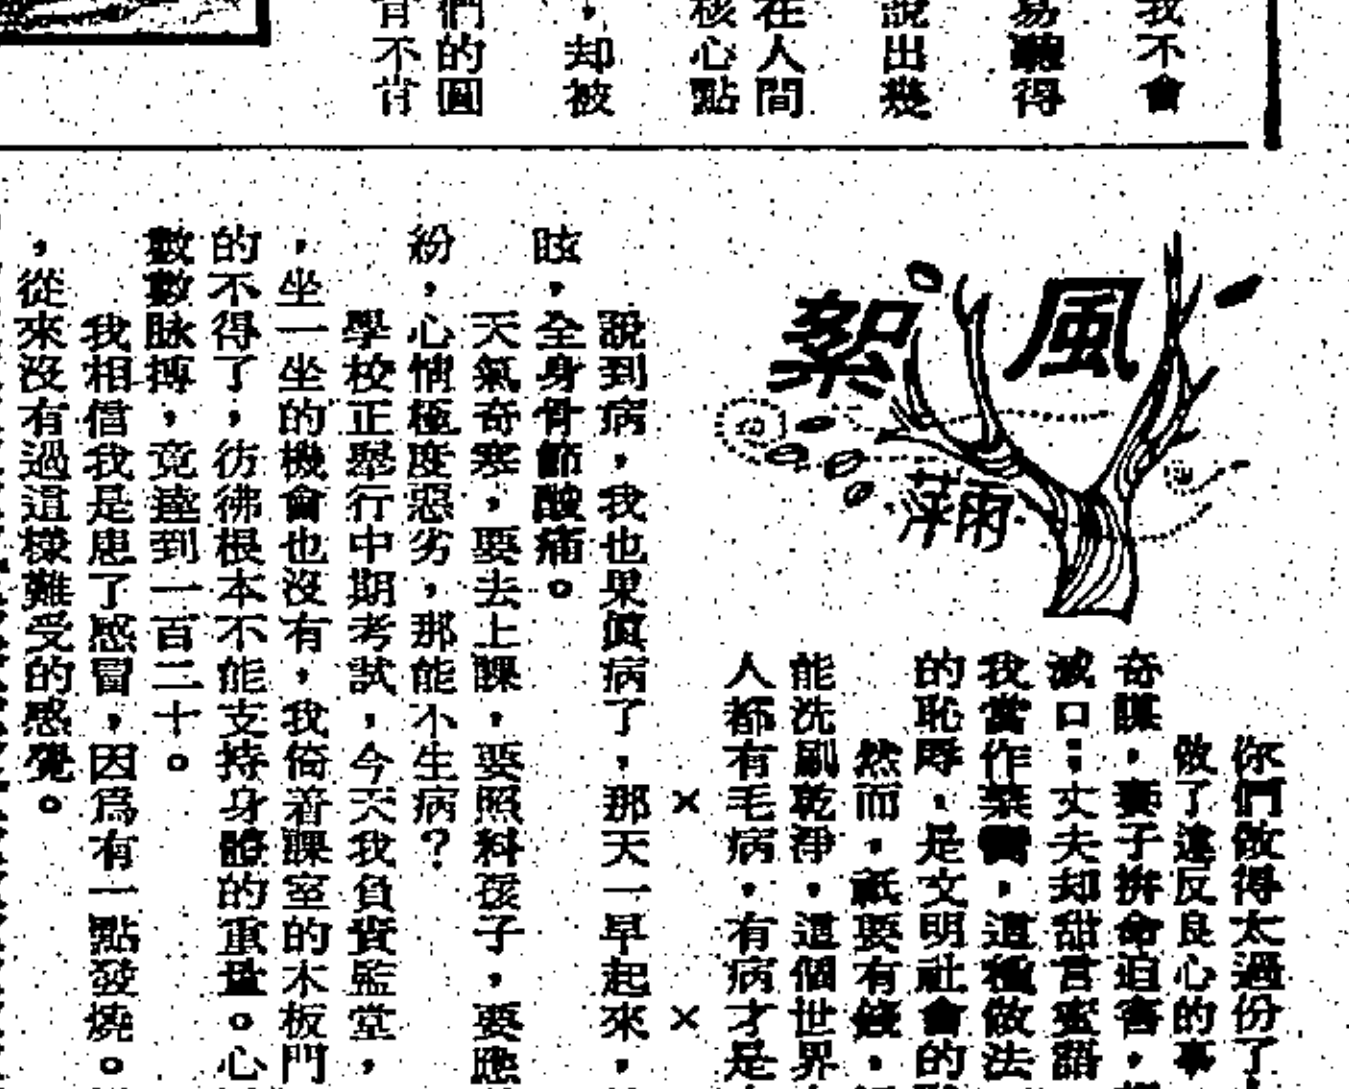 我不會
易聽得
說出幾
在人間
核心點
，却被
們的圓
肯不肯
風絮
萍雨
你們做得太過份了
做了違反良心的事
奇謀，妻子拚命迫害，
滅口；丈夫却甜言蜜語
我當作禁臠，這種做法
的恥辱，是文明社會的
然而，祇要有錢，
能洗刷乾淨，這個世界
人都有毛病，有病才是
× ×
說到病，我也果真病了，那天一早起來，
眩，全身骨節酸痛。
天氣奇寒，要去上課，要照料孩子，要應
紛，心情極度惡劣，那能不生病？
學校正舉行中期考試，今天我負責監堂，
，坐一坐的機會也沒有，我倚着課室的木板門
的不得了，彷彿根本不能支持身體的重量。心
數數脉搏，竟達到一百二十。
我相信我是患了感冒，因爲有一點發燒。
，從來沒有過這樣難受的感覺。